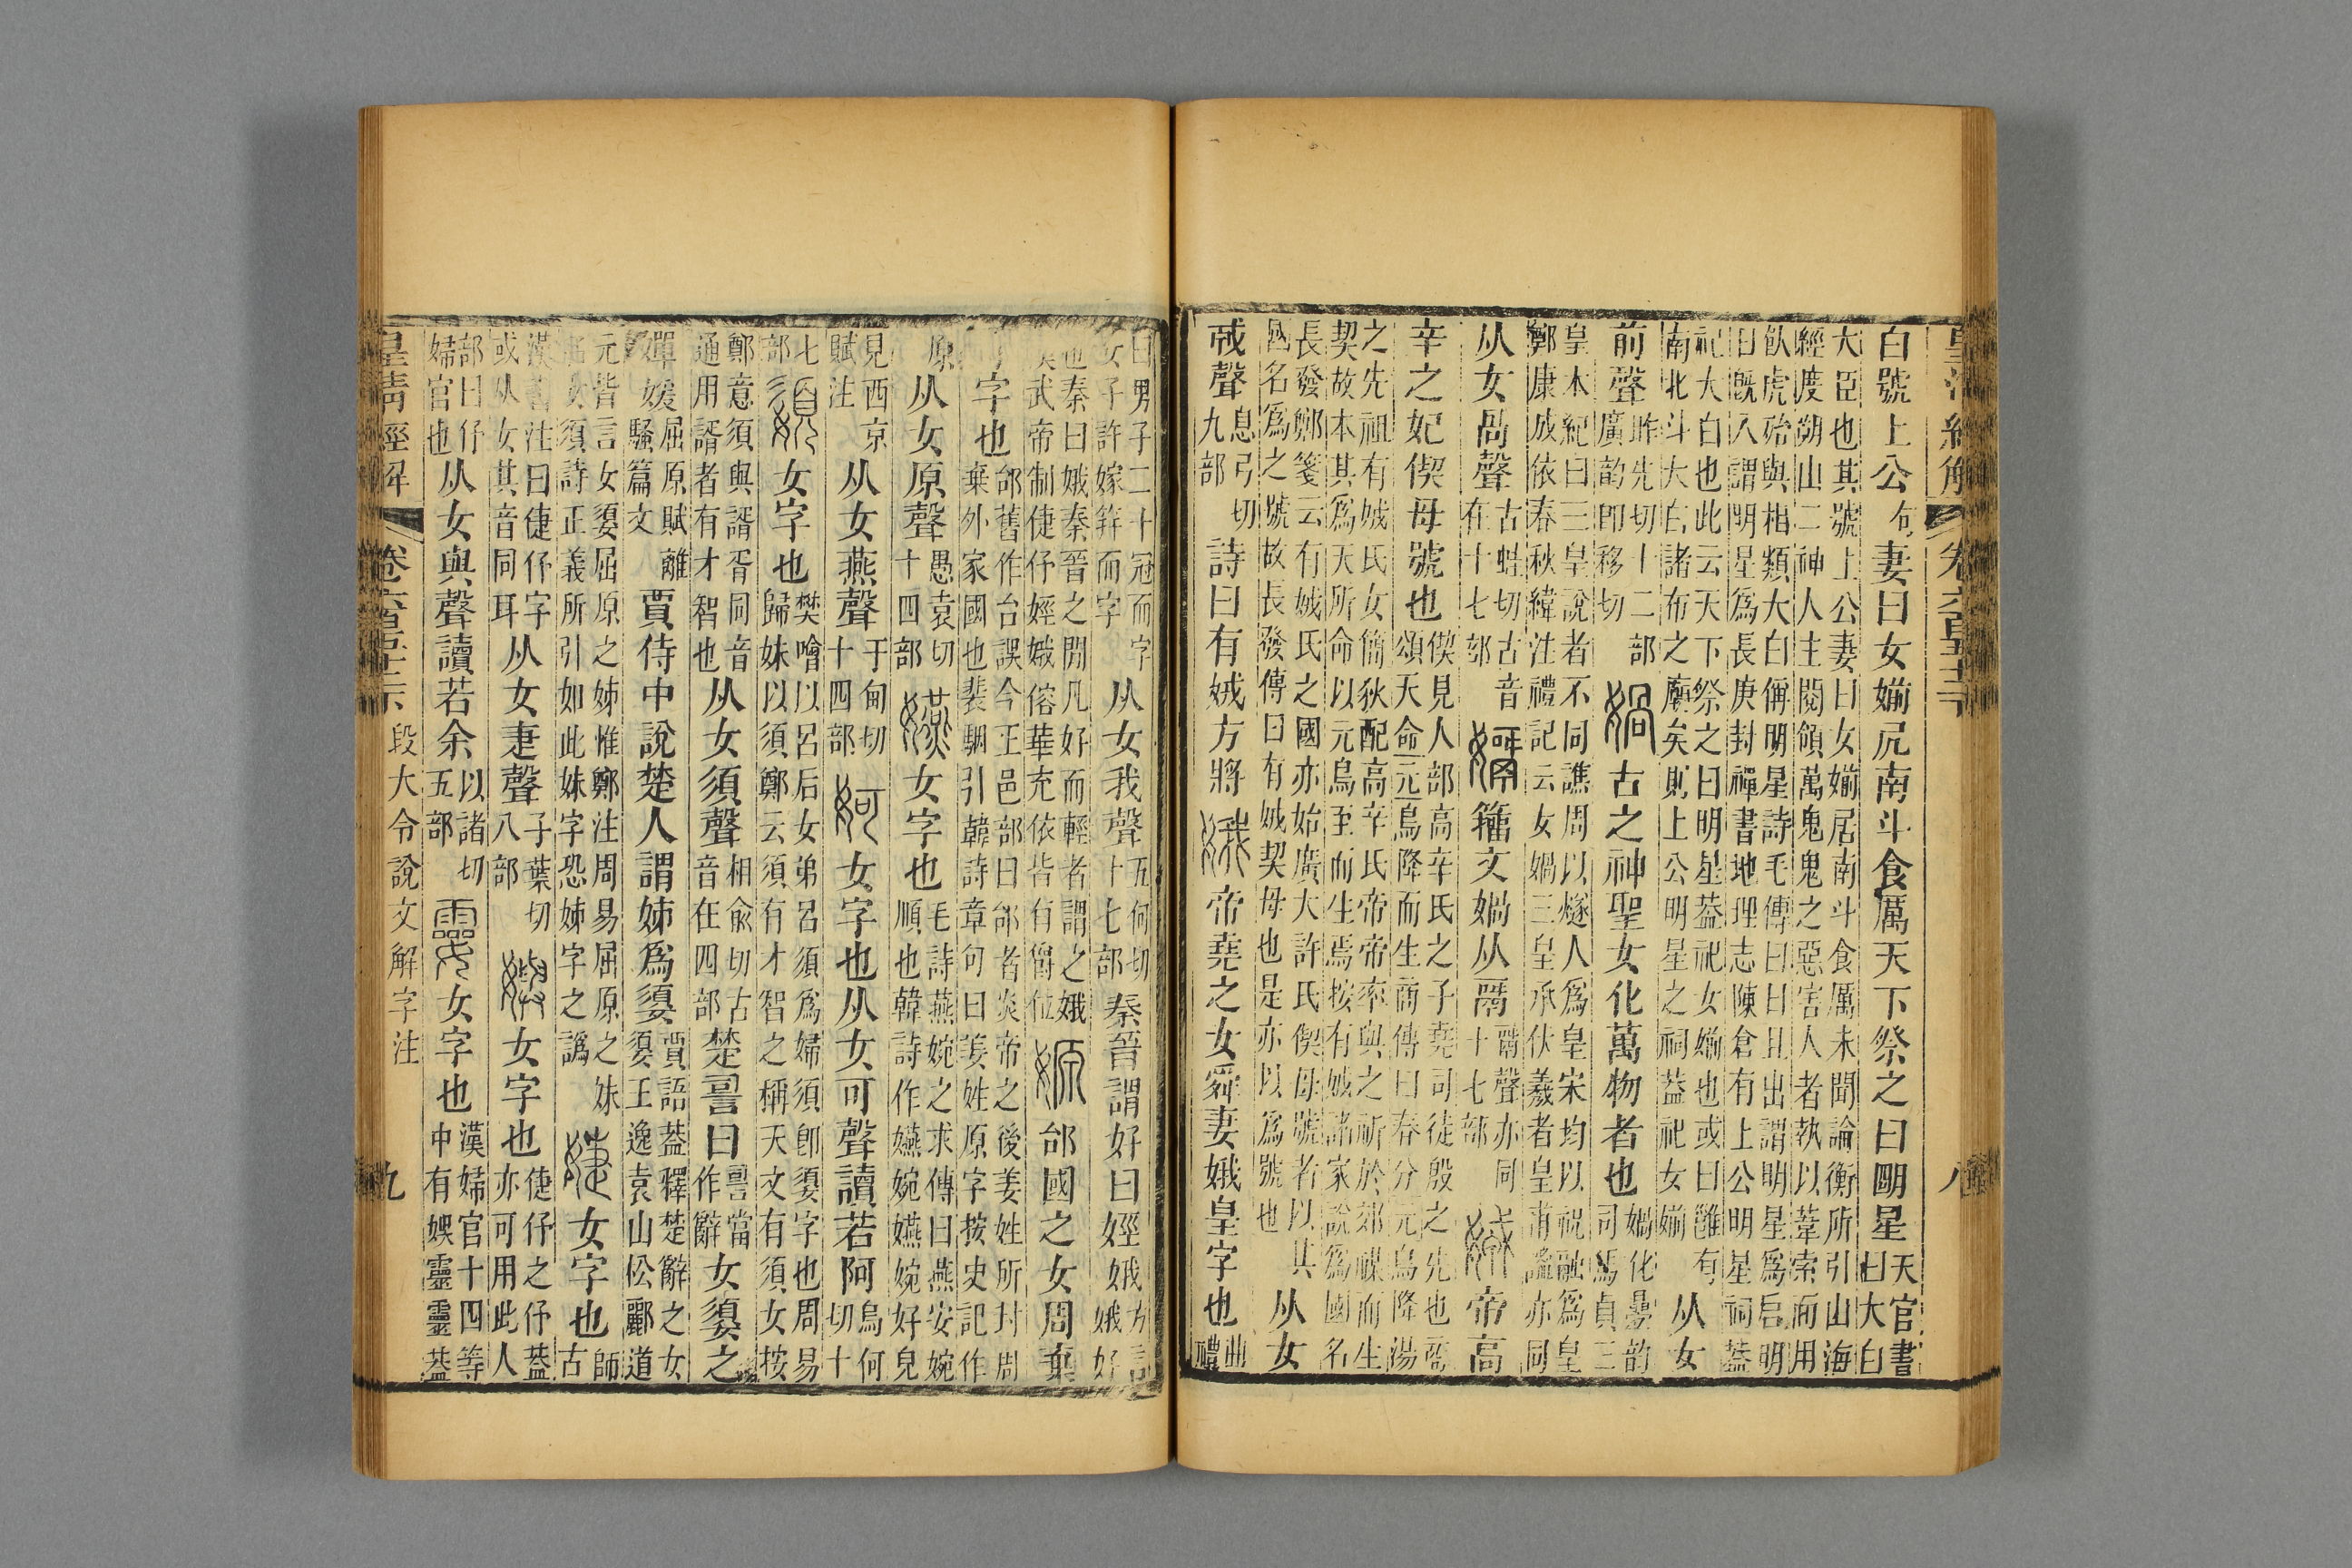 皇淸經解 卷六百五十二下 八
白號上公句妻曰女媊凥南斗食厲天下祭之曰朙星天官書曰大白
大臣也其號上公妻曰女媊居南斗食厲未聞論衡所引山海
經度朔山二神人主閱領萬鬼鬼之惡害人者執以葦索而用
飮虎殆與相類大白偁明星詩毛傳曰日旦出謂明星爲启明
日旣入謂明星爲長庚封禪書地理志陳倉有上公明星祠葢
祀大白也此云天下祭之曰明星葢祀女媊也或曰雝有
南北斗大白諸布之廟矣則上公明星之祠葢祀女媊从女
前聲昨先切十二部廣韵卽移切媧古之神聖女化萬物者也媧化曡韵司馬貞三
皇本紀曰三皇說者不同譙周以燧人爲皇宋均以祝融爲皇
鄭康成依春秋緯注禮記云女媧三皇承伏羲者皇甫謐亦同
从女咼聲古蛙切古音在十七部籒文媧从䰜䰜聲亦同十七部娀帝高
辛之妃偰母號也偰見人部高辛氏之子堯司徒殷之先也商
頌天命元鳥降而生商傳曰春分元鳥降湯
之先祖有娀氏女簡狄配高辛氏帝帝率與之祈於郊禖而生
契故本其爲天所命以元鳥至而生焉按有娀諸家說爲國名
長發鄭箋云有娀氏之國亦始廣大許氏偰母號者以其
國名爲之號故長發傳曰有娀契母也是亦以爲號也从女
戎聲息弓切九部詩曰有娀方將娥帝堯之女舜妻娥皇字也曲禮
曰男子二十冠而字女子許嫁筓而字从女我聲五何切十七部秦晉謂好曰娙娥方言娥好
也秦曰娥秦晉之閒凡好而輕者謂之娥漢武帝制倢伃娙娥傛華充依皆有爵位嫄邰國之女周棄
母字也邰舊作台誤今正邑部曰邰者炎帝之後姜姓所封周
棄外家國也裴駰引韓詩章句曰姜姓原字按史記作
原从女原聲愚袁切十四部嬿女字也毛詩燕婉之求傳曰燕安婉順也韓詩作嬿婉嬿婉好皃
見西京賦注从女燕聲于甸切十四部妸女字也从女可聲讀若阿烏何切十
七部嬃女字也樊噲以呂后女弟呂須爲婦須卽嬃字也周易
歸妹以須鄭云須有才智之稱天文有須女按
鄭意須與諝胥同音通用諝者有才智也从女須聲相兪切古音在四部楚䛐曰䛐當作辭女嬃之
嬋媛屈原賦離騷篇文賈侍中說楚人謂姊爲嬃賈語葢釋楚辭之女嬃王逸袁山松酈道
元皆言女嬃屈原之姊惟鄭注周易屈原之妹名女須詩正義所引如此妹字恐姊字之譌㛗女字也師古
漢書注曰倢伃字或从女其音同耳从女疌聲子葉切八部㜩女字也倢伃之伃葢亦可用此人
部曰伃婦官也从女與聲讀若余以諸切五部孁女字也漢婦官十四等中有娛靈靈葢
皇淸經解 卷六百五十二下 段大令說文解字注 九